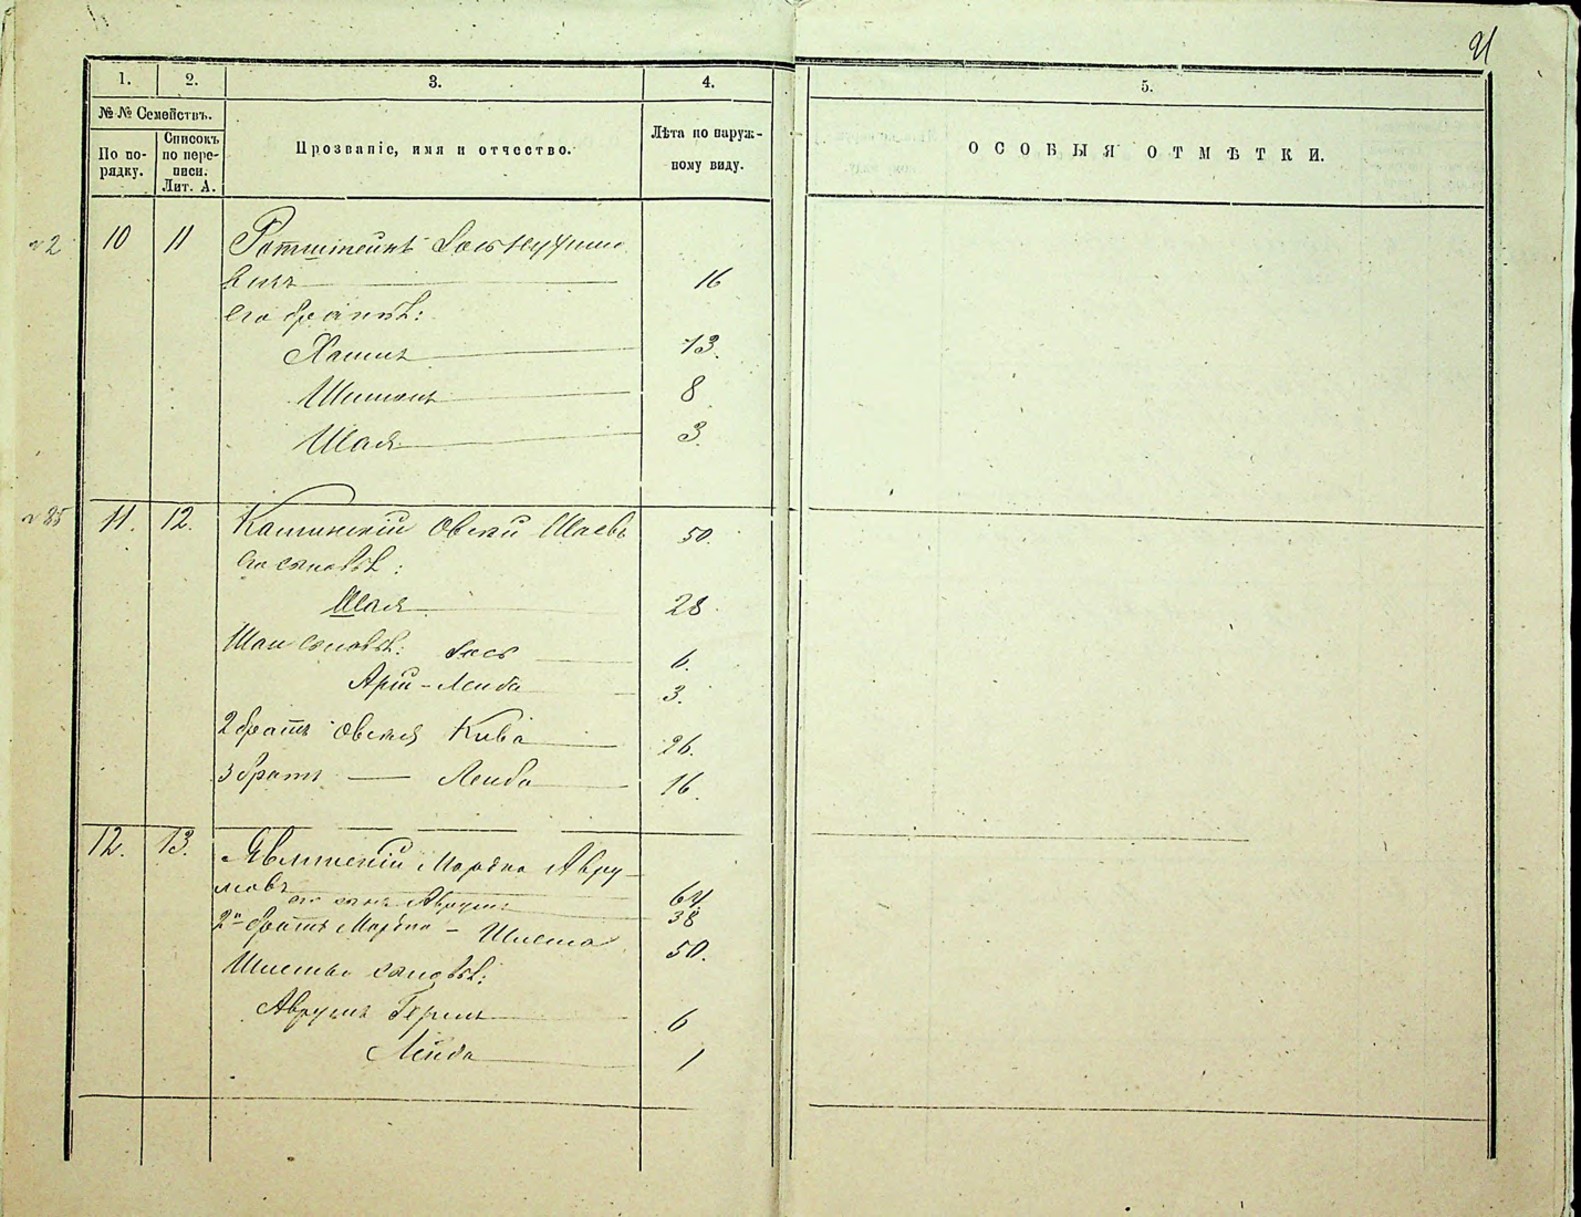 21
1. 2. 3. 4. 5.
№ № Семействъ.
По по-
рядку.
Списокъ
по пере-
писи.
Лит. А.
Прозваніе, имя и отчество.
Лѣта по наруж-
ному виду.
ОСОБЫЯ ОТМѢТКИ.
10 11 Ротштейнъ
вичъ 16
его братья:
Хаимъ 13.
Шимонъ 8
Шая 3.
11. 12. Овсей Шаевъ 50.
его сыновья:
Шая 28
Шаи сыновья: Іось 6.
Арій-Лейба 3.
2 братъ Овсея Кива 26.
3 братъ — Лейба 16.
12. 13. Мордко Авру-
мовъ 64
его сынъ Аврумъ 38
2й братъ Мордко - 50.
сыновья:
Аврумъ Гершъ 6
Лейба 1